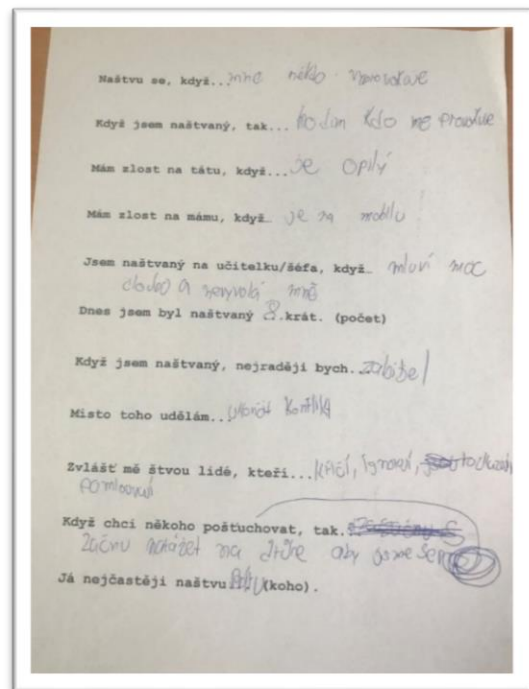 Naštvu se, když...mne někdo
Když jsem naštvaný, tak... kdo me Provokuje
Mám zlost na tátu, když...je opilý
Mám zlost na mámu, když… je na mobilu!
Jsem naštvaný na učitelku/šéfa, když… mluví moc
dlouho a nevyvolá mně
Dnes jsem byl naštvaný 8.krát. (počet)
Když jsem naštvaný, nejraději bych..
Místo toho udělám.. konflikt
Zvlášť mě štvou lidé, kteří... křičí,
pomlouvají
Když chci někoho pošťuchovat, tak.
začnu narážet na aby jsme
Já nejčastěji naštvu (koho).